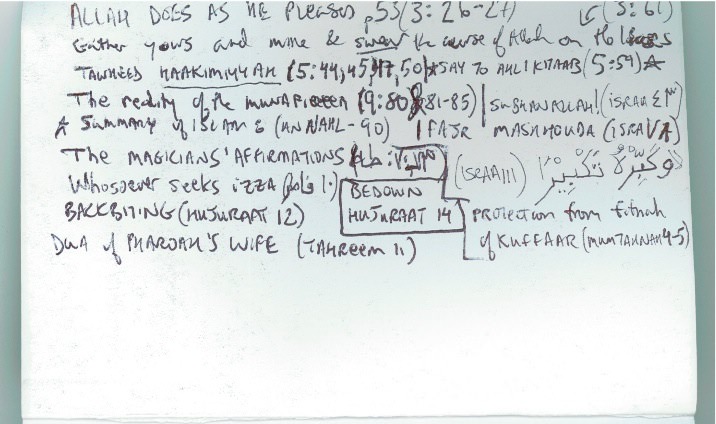 ALLAH DOES AS HE PLEASES p53 (3: 26-27) (3: 61)
Gather yours and mine & swear the curse of Allah on the liars
TAWHEED HAAKIMIYYAH (5:44,45,47,50) SAY TO AHLI KITAAB (5:59)
The reality of the MUNAFIQEEN (9:80 81-85) | SUBHANALLAH! (ISRAA ٤٣)
SUMMARY of ISLAM & (AN NAHL-90) | FAJR MASHHOUDA (ISRA ٧٨)
The MAGICIANS' AFFIRMATIONS طه : (ISRAA 111) وَكَبِّرْهُ تَكْبِيرًا
Whosoever seeks izza فاطر ١٠
BEDOWN
HUJURAAT 14
BACKBITING (HUJURAAT 12)
PROTECTION from fitnah
of KUFFAAR (MUMTAHNAH 4-5)
DUA of PHAROAH'S WIFE (TAHREEM 11)